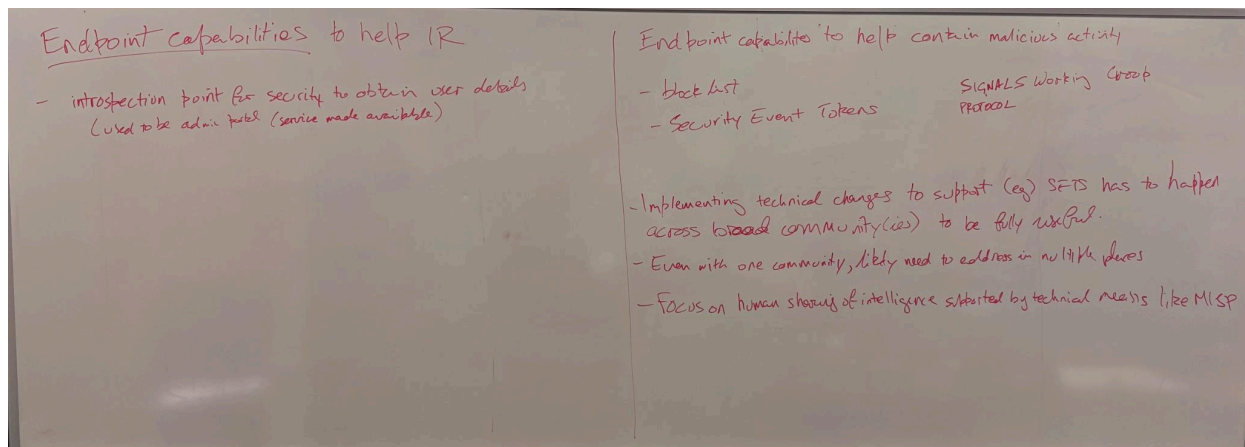 Endpoint capabilities to help IR
- introspection point for security to obtain user details
(used to be admin portal (service made available)
Endpoint capabilites to help contain malicious activity
- block list
- Security Event Tokens
SIGNALS Working Group
PROTOCOL
- Implementing technical changes to support (eg) SETS has to happen
across broad community(ies) to be fully useful.
- Even with one community, likely need to address in multiple places
- Focus on human sharing of intelligence supported by technical means like MISP